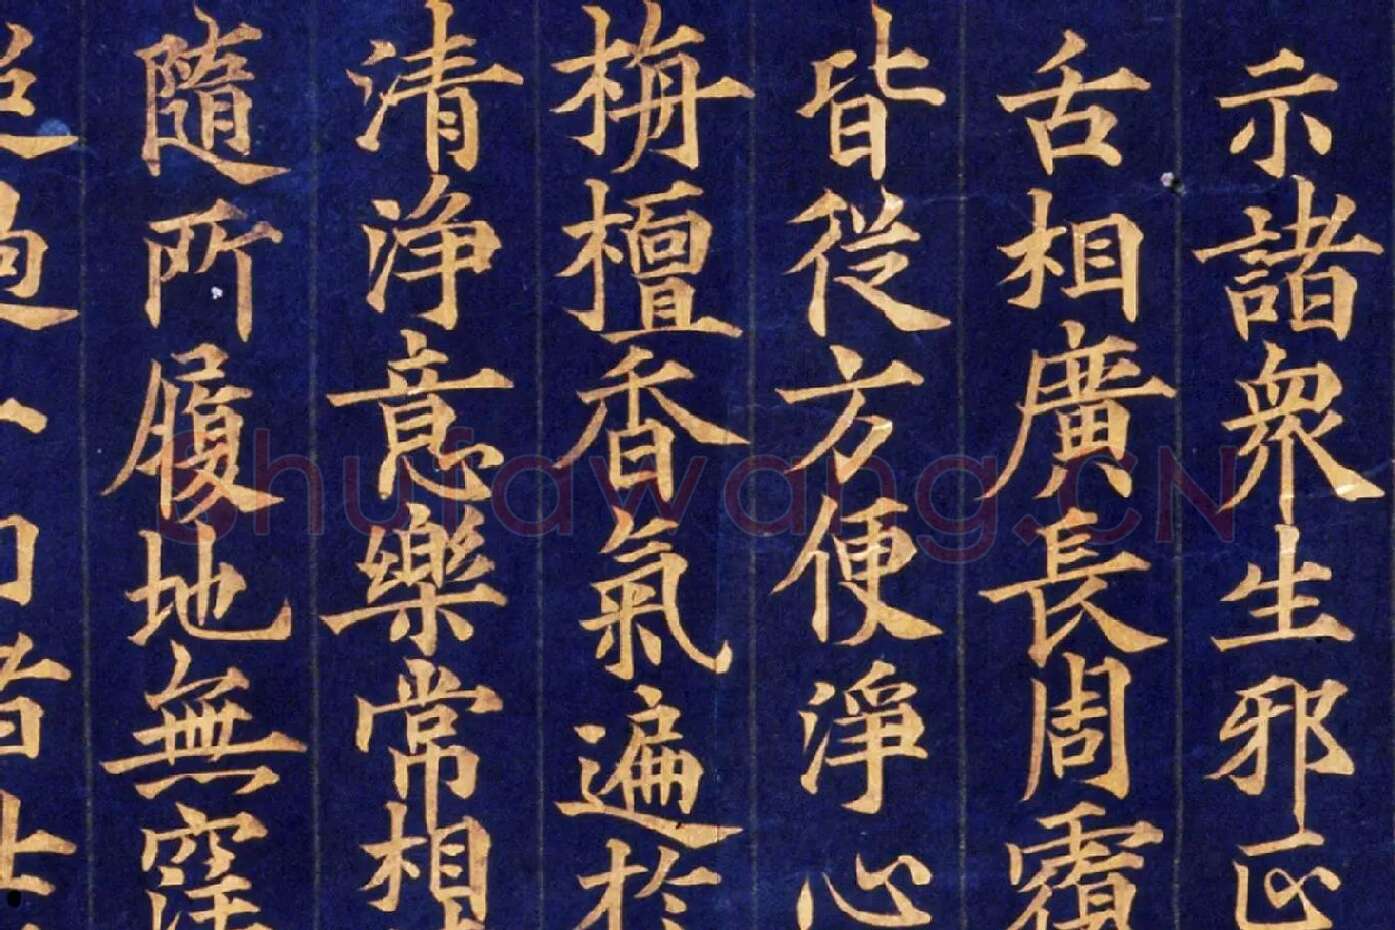 示諸衆生邪正
舌相廣長周覆
皆從方便淨心
栴檀香氣遍於
清浄意樂常相
隨所履地無窪
Shufawang.CN